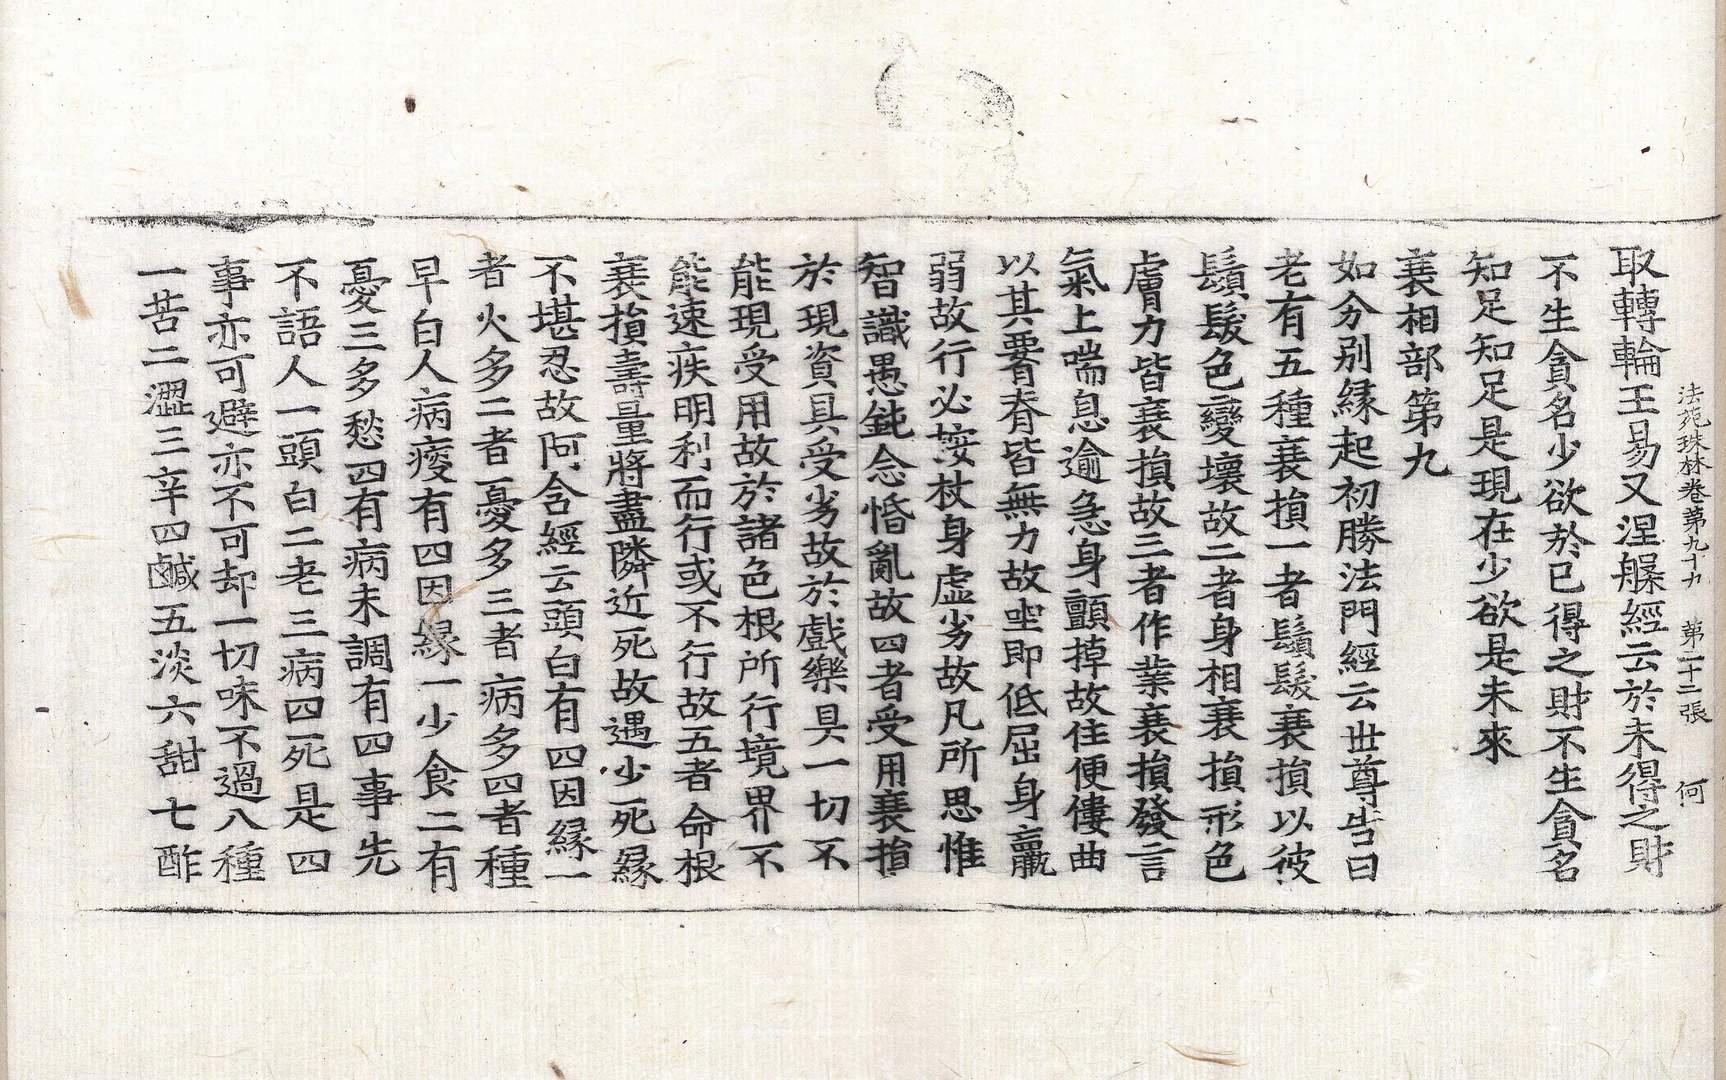 法苑珠林卷第九十九　第二十二張　何
取轉輪王易又涅槃經云於未得之財
不生貪名少欲於已得之財不生貪名
知足知足是現在少欲是未來
衰相部第九
如分别緣起初勝法門經云世尊告曰
老有五種衰損一者鬚髮衰損以彼
鬚髮色變壞故二者身相衰損形色
膚力皆衰損故三者作業衰損發言
氣上喘息逾急身顫掉故住便僂曲
以其要脊皆無力故坐即低屈身羸
弱故行必按杖身虛劣故凡所思惟
智識愚鈍念惛亂故四者受用衰損
於現資具受劣故於戲樂具一切不
能現受用故於諸色根所行境界不
能速疾明利而行或不行故五者命根
衰損壽量將盡隣近死故遇少死緣
不堪忍故阿含經云頭白有四因緣一
者火多二者憂多三者病多四者種
早白人病瘦有四因緣一少食二有
憂三多愁四有病未調有四事先
不語人一頭白二老三病四死是四
事亦可避亦不可却一切味不過八種
一苦二澀三辛四鹹五淡六甜七酢